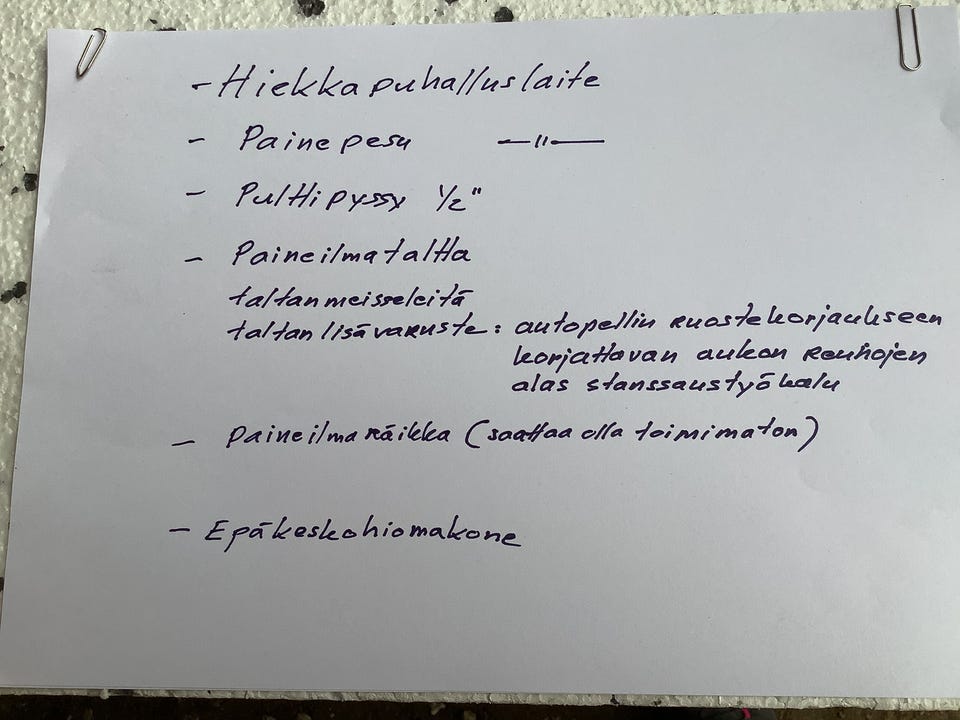 - Hiekkapuhalluslaite
- Painepesu —"—
- Pulttipyssy 1/2"
- Paineilmataltta
taltanmeisseleitä
taltan lisävaruste: autopellin ruostekorjaukseen
korjattavan aukon reunojen
alas stanssaustyökalu
- Paineilmaräikka (saattaa olla toimimaton)
- Epäkeskohiomakone